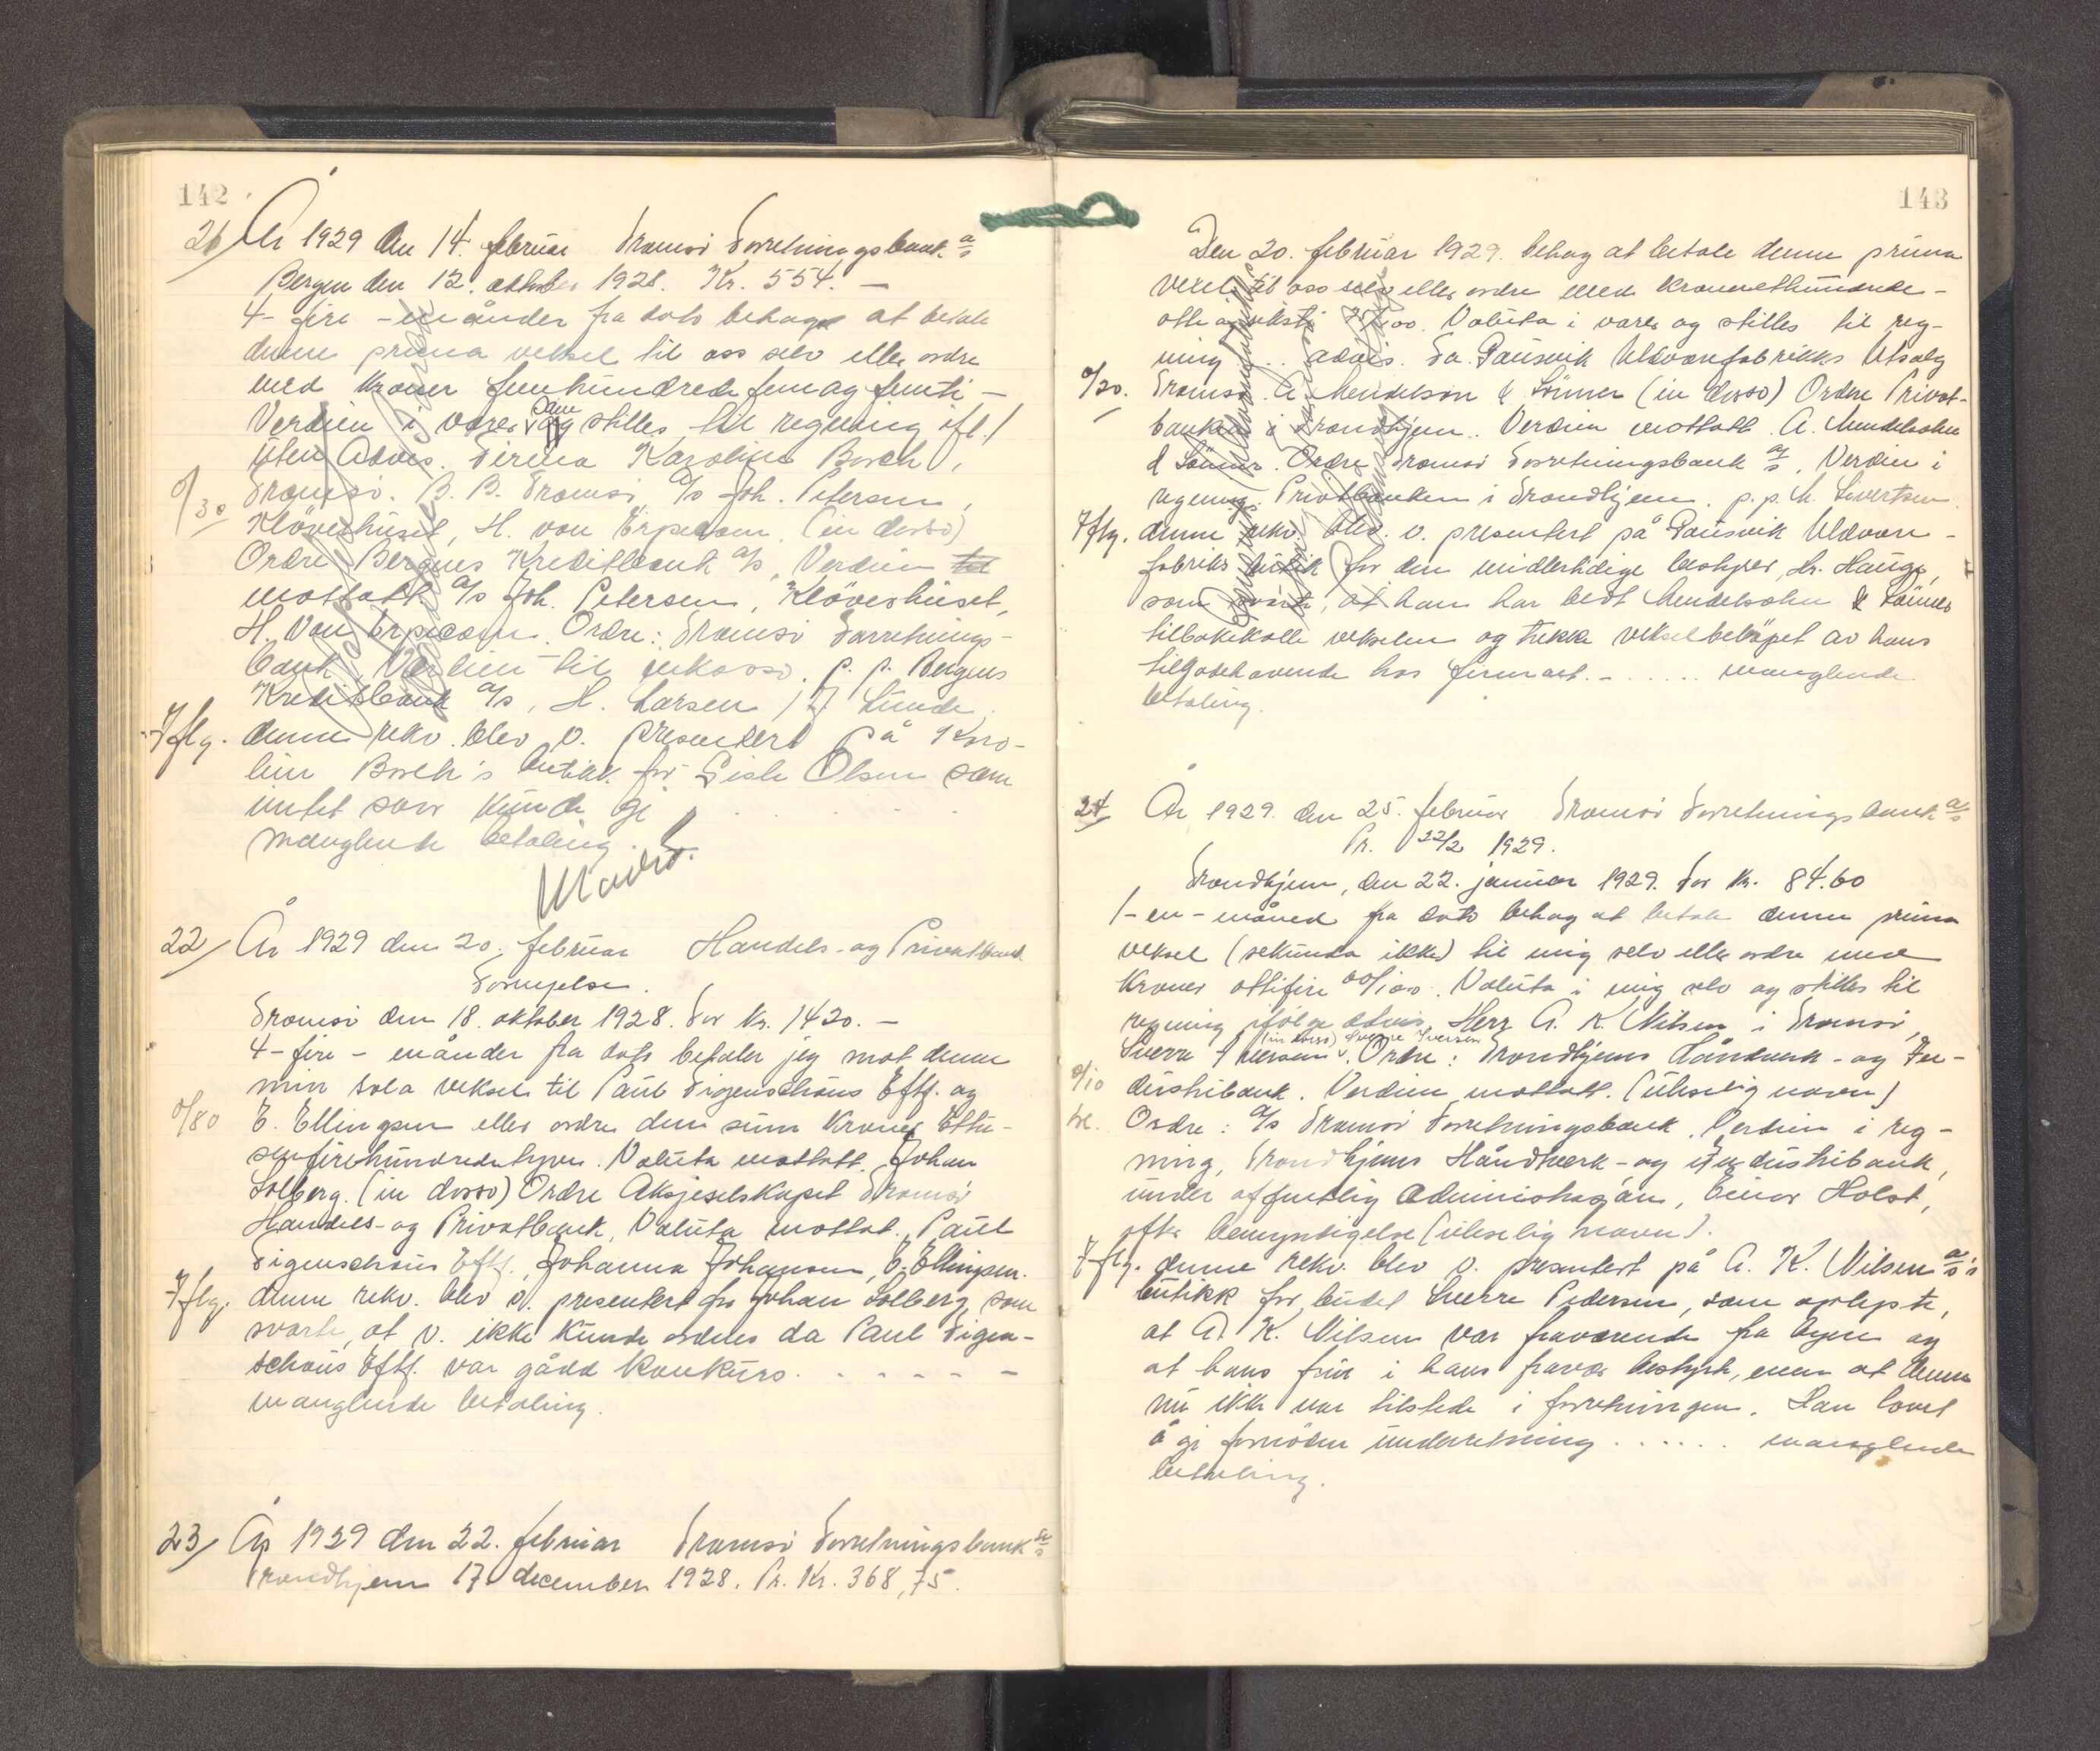 142
21/ År 1929 den 14. februar Tromsö Forretningsbank a/s
Bergen den 12. oktober 1928. Kr. 554.–
4 – fire – måneder fra dato behage at betale
denne prima veksel til oss selv eller ordre
med Kroner femhundredefemogfemti –
Verdien i varer som stilles til regning ifl./
uten Advis. Firma Karoline Borch,
0/30 Tromsö. B. B. Tromsö, A/s Joh. Petersen,
Klöverhuset, H. von Erpecom. (in dorso)
Ordre Bergens Kreditbank A/s, Verdien til
mottatt A/s Joh. Petersen, Klöverhuset,
H. von Erpecom. Ordre: Tromsö Forretnings-
bank, Verdien til inkasso. p. p. Bergens
Kreditbank A/s, H. Larsen / J Lunde.
Iflg. denne rekv. blev v. presentert på Karo-
line Borch's butikk for Gisle Olsen som
intet svar kunde gi . . . .
manglende betaling.
22/ År 1929 den 20. februar Handels- og Privatbank
Fornyelse.
Tromsö den 18. oktober 1928. For Kr. 1420.–
4 – fire – måneder fra dato betaler jeg mot denne
min sola veksel til Paul Figenschous Eftf. og
0/80 E. Ellingsen eller ordre den sum Kroner Ettu-
senfirehundredetyve. Valuta mottatt. Johan
Solberg. (in dorso) Ordre Aksjeselskapet Tromsö
Handels- og Privatbank, Valuta mottat. Paul
Figenschous Eftf., Johanna Johansen, E. Ellingsen.
Iflg. denne rekv. blev v. presentert for Johan Solberg, som
svarte, at v. ikke kunde ordnes da Paul Figen-
schous Eftf. var gådd konkurs. . . . – – –
manglende betaling.
23/ År 1929 den 22. februar Tromsö Forretningsbank a/s
Trondhjem 17. december 1928. Pr. Kr. 368,75.
143
Den 20. februar 1929. behag at betale denne prima
vexel til oss selv eller ordre med Kroneretthundrede-
otte og seksti 75/100. Valuta i varer og stilles til reg-
ning . . advis. Fa. Gausvik Uldvarefabrikks Utsalg
0/20. Tromsö. A. Mendelson & Sönner (in dorso) Ordre Privat-
banken i Trondhjem. Verdien mottatt. A. Mendelsohn
& Sönner. Ordre Tromsö Forretningsbank A/s, Verdien i
regning. Privatbanken i Trondhjem. p. p. M. Sivertsen.
Iflg. denne rekv. blev. v. presentert på Gausvik Uldvare-
fabriks butik for den midlertidige bestyrer, Hr. Hauge,
som svarte, at han har bedt Mendelsohn & Sönner
tilbakekalle vekselen og trekke vekselbelöpet av hans
tilgodehavende hos firmaet. – . . . . . manglende
betaling.
24/ År 1929. den 25. februar Tromsö Forretningsbank A/s
Pr. 22/2 1929.
Trondhjem, den 22. januar 1929. For Kr. 84.60
1 – en – måned fra dato behag at betale denne prima
veksel (sekunda ikke) til mig selv eller ordre med
Kroner ottifire 60/100. Valuta i mig selv og stilles til
regning ifölge advis. Herr A. K. Nilsen i Tromsö,
(in dorso) Sverre Iversen
Sverre Iversen. Ordre: Trondhjems Håndverk- og In-
0/10 dustribank. Verdien mottatt. (uleselig navn)
Ordre: A/s Tromsö Forretningsbank. Verdien i reg-
ning, Trondhjems Håndtverk- og industribank,
under offentlig administrasjon, Einar Holst,
efter bemyndigelse (uleselig navn).
Iflg. denne rekv. blev v. presentert på A. K. Nilsen A/s's
butikk for budet Sverre Pedersen, som oplyste,
at A. K. Nilsen var fraværende fra byen og
at hans frue i hans fravær bestyrte, men at denne
nu ikke var tilstede i forretningen. Han lovet
å gi fornöden underretning . . . . . . manglende
betaling.